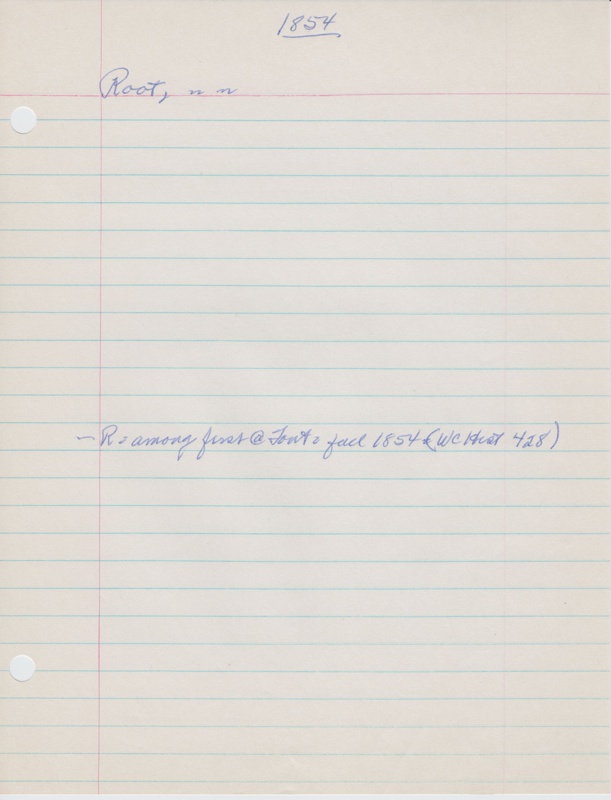 1854
Root, n n
– R. among first @ Font. fall 1854 (WC Hist 428)